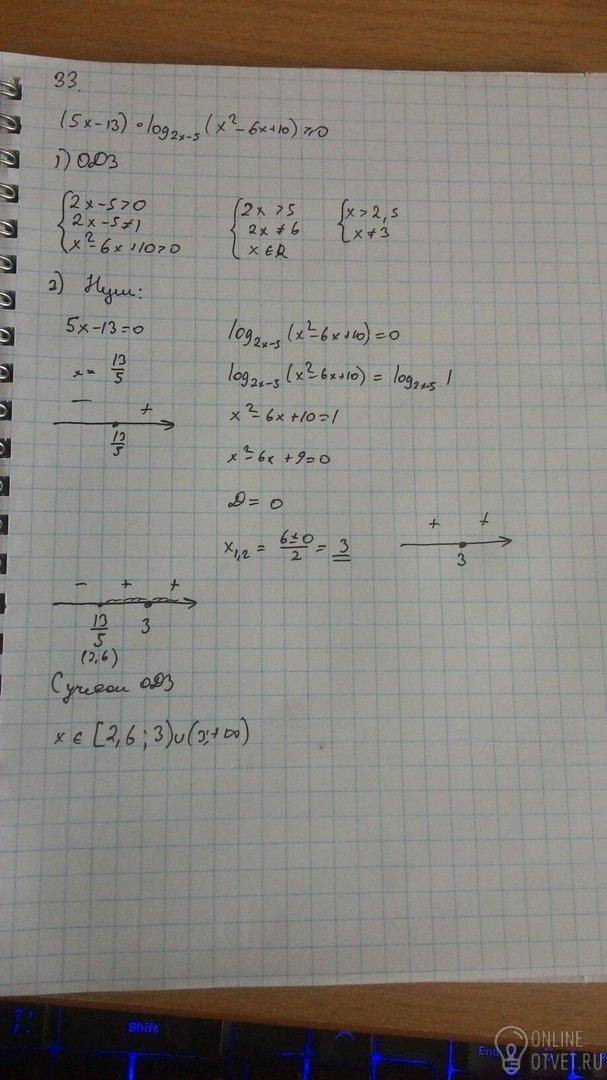 33.
(5x-13)·log₂ₓ₋₅(x²-6x+10)≥0
1) ОДЗ
{2x-5>0 {2x>5 {x>2,5
{2x-5≠1 {2x≠6 {x≠3
{x²-6x+10>0 {x∈R
2) Нули:
5x-13=0 log₂ₓ₋₅(x²-6x+10)=0
x= 13/5 log₂ₓ₋₅(x²-6x+10) = log₂ₓ₋₅ 1
- + x²-6x+10=1
13/5
x²-6x+9=0
D= 0
x₁,₂ = (6±0)/2 = 3
+ +
3
- + +
13/5 3
(2,6)
С учетом ОДЗ
x ∈ [2,6 ; 3)∪(3;+∞)
Shift
End
ONLINE
OTVET.RU